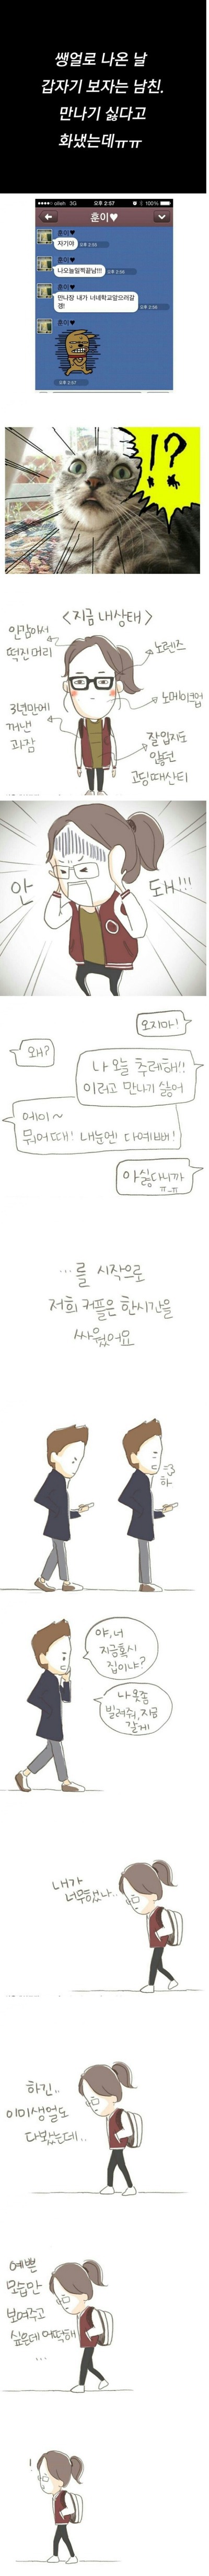 쌩얼로 나온 날
갑자기 보자는 남친.
만나기 싫다고
화냈는데ㅠㅠ
olleh 3G 오후 2:57 100%
훈이♥
훈이♥
자기야 오후 2:55
훈이♥
나오늘일찍끝남!!! 오후 2:56
훈이♥
만나장 내가 너네학교앞으러갈
갱! 오후 2:56
훈이♥
오후 2:57
!?
<지금 내상태>
안감아서
떡진머리
노렌즈
3년만에
꺼낸
과잠
노메이크업
잘입지도
않던
고딩때산티
안 돼!!!
오지마!
왜?
나 오늘 추레해!!
이러고 만나기 싫어
에이~
뭐어때! 내눈엔 다예뻐!
아싫다니까
ㅠ_ㅠ
...를 시작으로
저희 커플은 한시간을
싸웠어요
하
야, 너
지금혹시
집이냐?
나옷좀
빌려줘, 지금
갈게
내가
너무했나..
하긴..
이미생얼도
다봤는데..
예쁜
모습만
보여주고
싶은데 어떡해
...
!